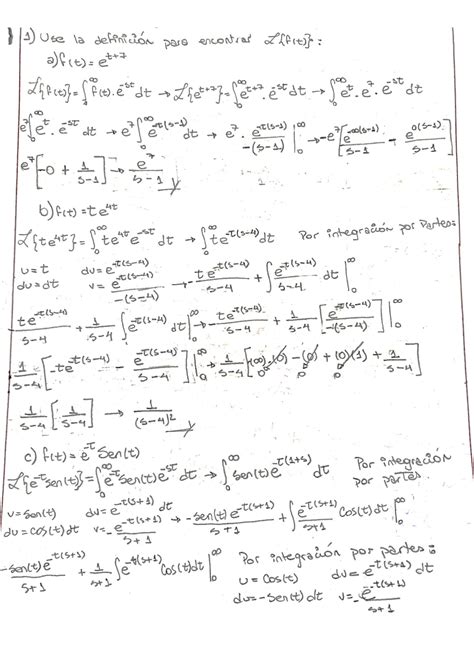 1) Use la definición para encontrar ℒ{f(t)}:
a) f(t) = e^{t+7}
ℒ{f(t)} = ∫₀^∞ f(t)·e^{-st} dt → ℒ{e^{t+7}} = ∫₀^∞ e^{t+7}·e^{-st} dt → ∫₀^∞ e^t·e^7·e^{-st} dt
e^7 ∫₀^∞ e^t·e^{-st} dt → e^7 ∫₀^∞ e^{-t(s-1)} dt → e^7 · e^{-t(s-1)}/-(s-1) |₀^∞ → -e^7 [e^{-∞(s-1)}/(s-1) - e^{0(s-1)}/(s-1)]
e^7 [-0 + 1/(s-1)] → e^7/(s-1)
b) f(t) = te^{4t}
ℒ{te^{4t}} = ∫₀^∞ te^{4t} e^{-st} dt → ∫₀^∞ te^{-t(s-4)} dt Por integración por Partes:
u = t dv = e^{-t(s-4)}
du = dt v = e^{-t(s-4)}/-(s-4) → -te^{-t(s-4)}/(s-4) + ∫ e^{-t(s-4)}/(s-4) dt |₀^∞
-te^{-t(s-4)}/(s-4) + 1/(s-4) ∫ e^{-t(s-4)} dt |₀^∞ → -te^{-t(s-4)}/(s-4) + 1/(s-4) [e^{-t(s-4)}/-(s-4)] |₀^∞
1/(s-4) [-te^{-t(s-4)} - e^{-t(s-4)}/(s-4)] |₀^∞ → 1/(s-4) [-(∞)·(0) - (0) + (0)(1) + 1/(s-4)]
1/(s-4) [1/(s-4)] → 1/(s-4)²
c) f(t) = e^{-t} Sen(t)
ℒ{e^{-t} Sen(t)} = ∫₀^∞ e^{-t} Sen(t) e^{-st} dt → ∫₀^∞ Sen(t) e^{-t(1+s)} dt Por integración
por partes
u = Sen(t) dv = e^{-t(s+1)} dt
du = cos(t) dt v = -e^{-t(s+1)}/(s+1) → -sen(t) e^{-t(s+1)}/(s+1) + ∫ e^{-t(s+1)}/(s+1) Cos(t) dt |₀^∞
-sen(t) e^{-t(s+1)}/(s+1) + 1/(s+1) ∫ e^{-t(s+1)} Cos(t) dt |₀^∞ Por integración por partes:
u = Cos(t) dv = e^{-t(s+1)} dt
du = -Sen(t) dt v = -e^{-t(s+1)}/(s+1)